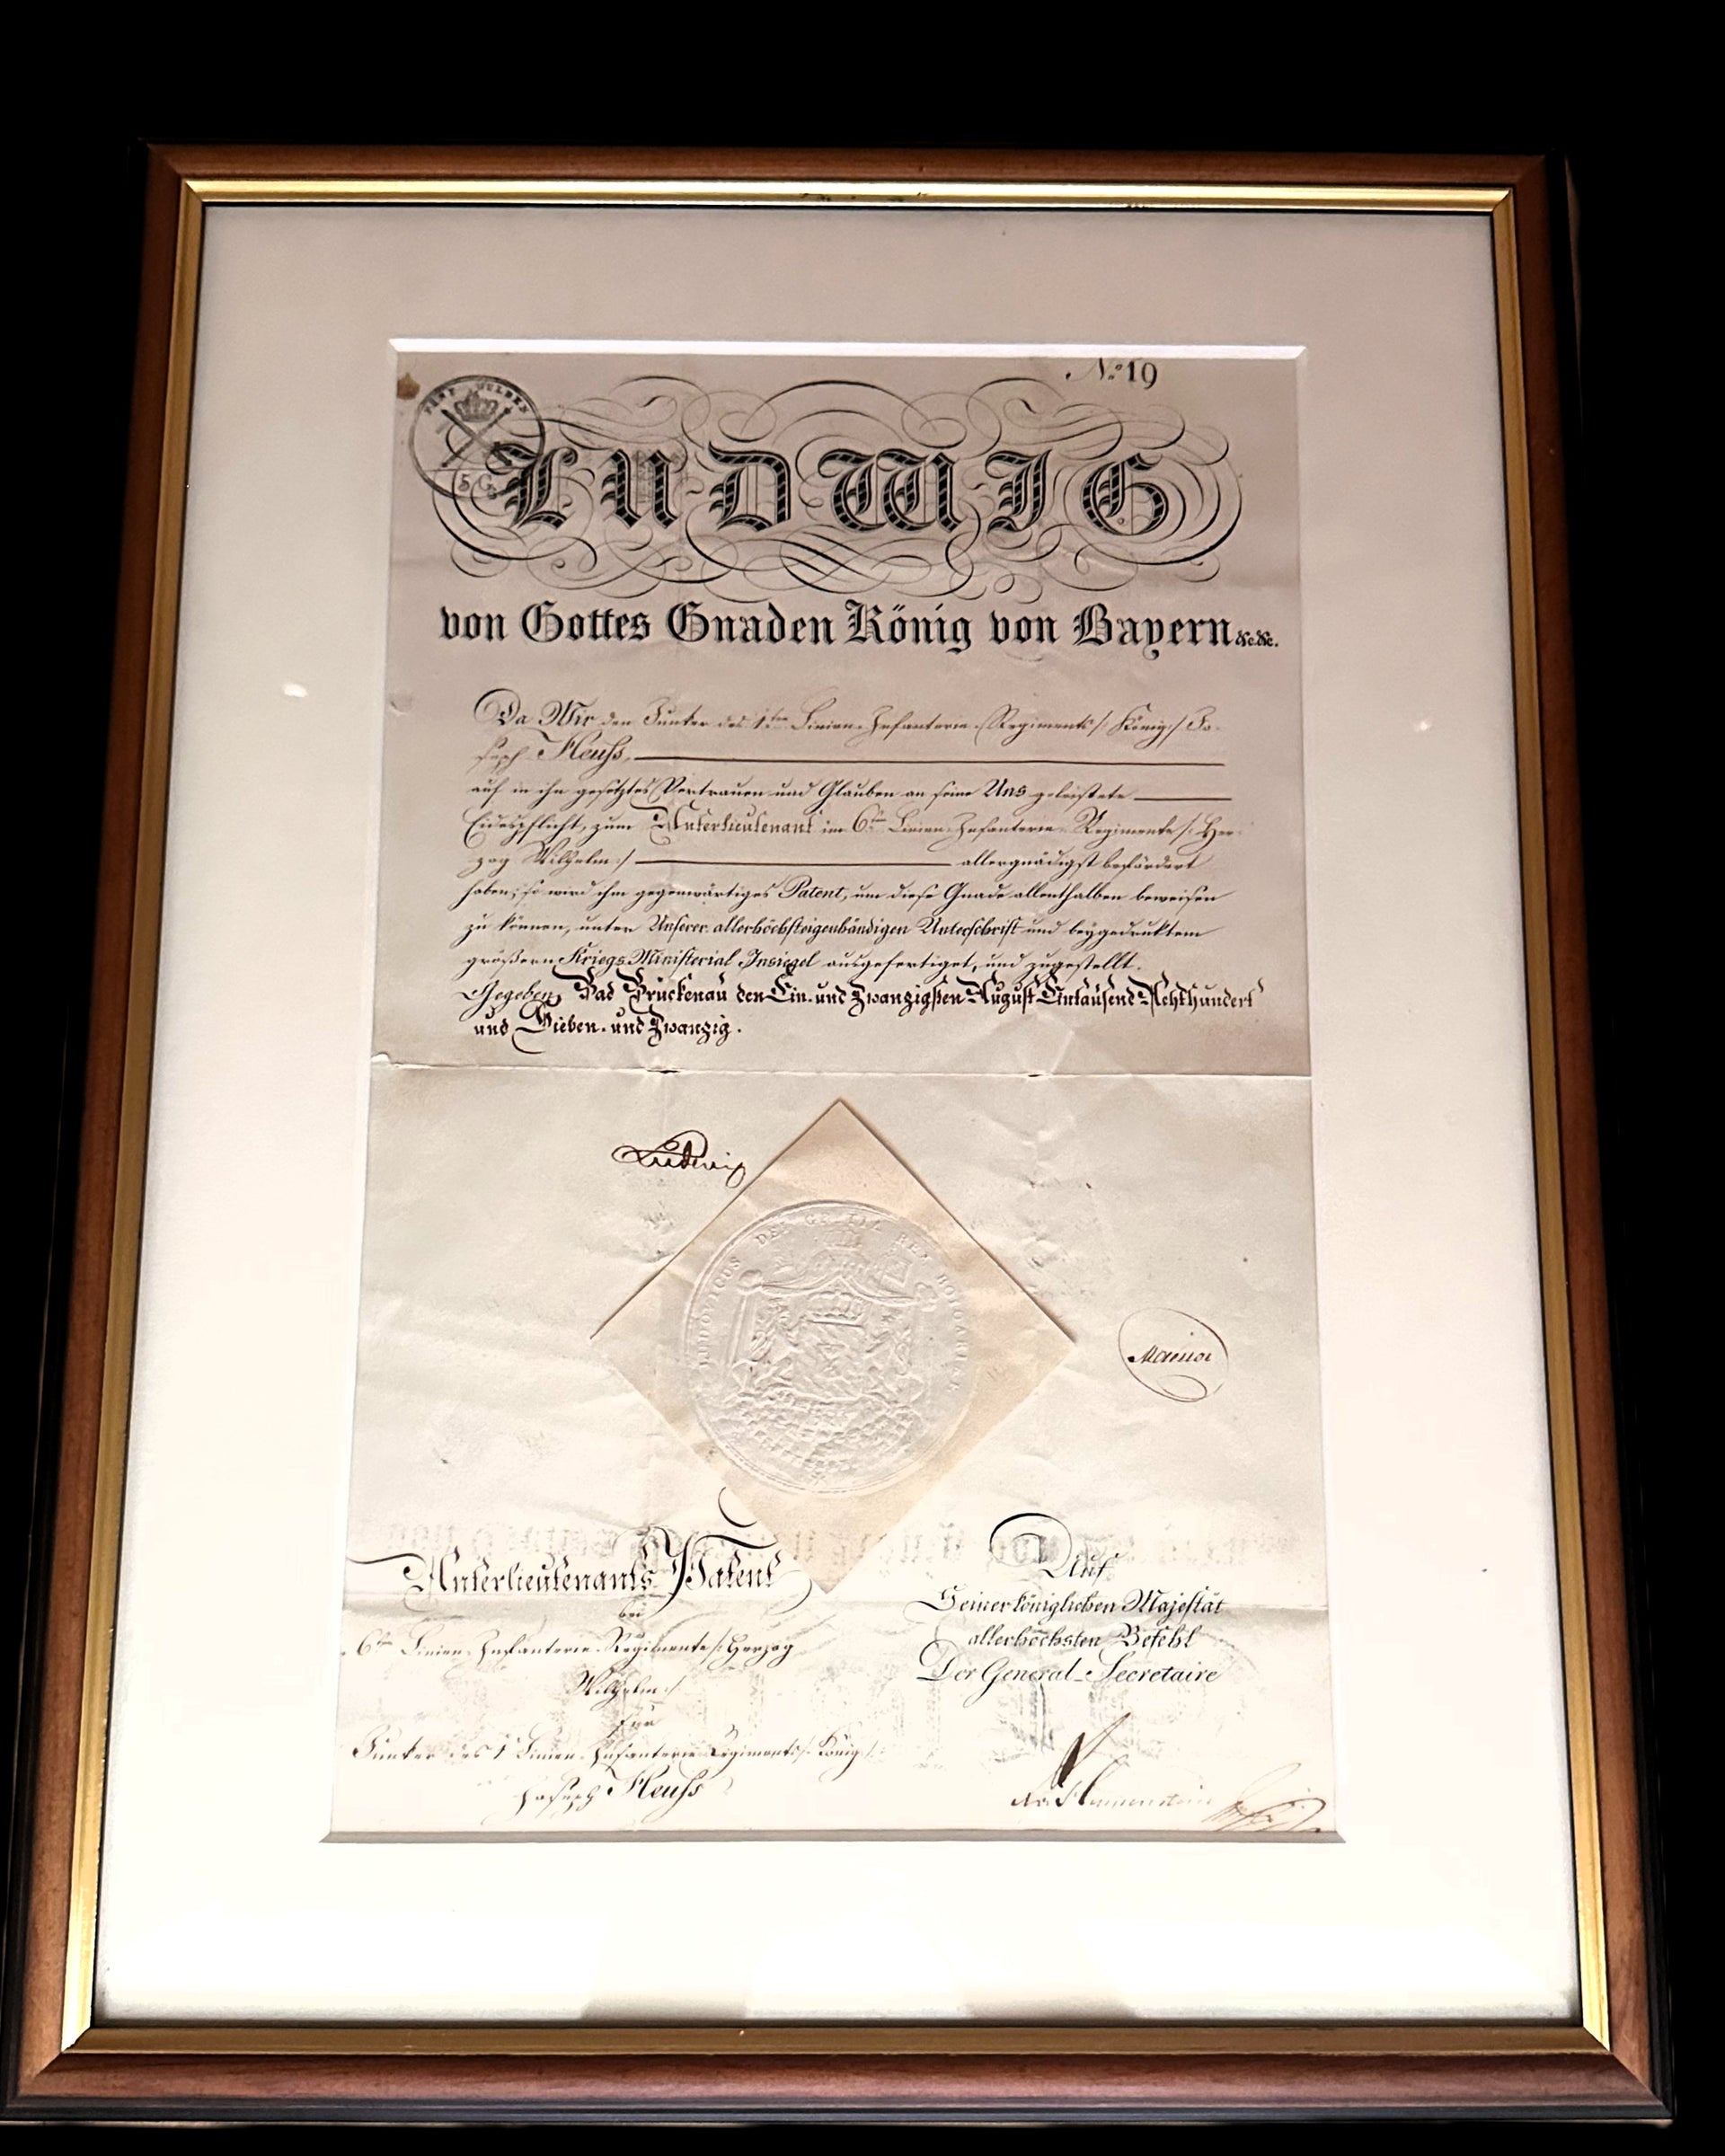 No. 19
FÜNF GULDEN
5 G.
LUDWIG
von Gottes Gnaden König von Bayern &c.&c.
Da Wir den Junker des 1ten Linien-Infanterie-Regiments /: König :/ Jo-
seph Heuss,
auf in ihn gesetztes Vertrauen und Glauben an seine Uns geleistete
Eidespflicht, zum Unterlieutenant im 6ten Linien-Infanterie-Regimente /: Her-
zog Wilhelm :/ allergnädigst befördert
haben; so wird ihm gegenwärtiges Patent, um diese Gnade allenthalben beweisen
zu können, unter Unserer allerhöchsteigenhändigen Unterschrift und beygedrucktem
größern Kriegs-Ministerial Insiegel ausgefertiget, und zugestellt.
Gegeben, Bad Brückenau den Ein- und Zwanzigsten August Eintausend Achthundert
und Sieben- und Zwanzig.
Ludwig
LUDOVICUS DEI GRATIA REX BOIOARIAE
Unterlieutenants-Patent
bei
6ten Linien-Infanterie-Regimente /: Herzog
Wilhelm :/
für
Junker des 1 Linien-Infanterie-Regiments /: König :/
Joseph Heuss
Auf
Seiner königlichen Majestät
allerhöchsten Befehl
Der General-Secretaire